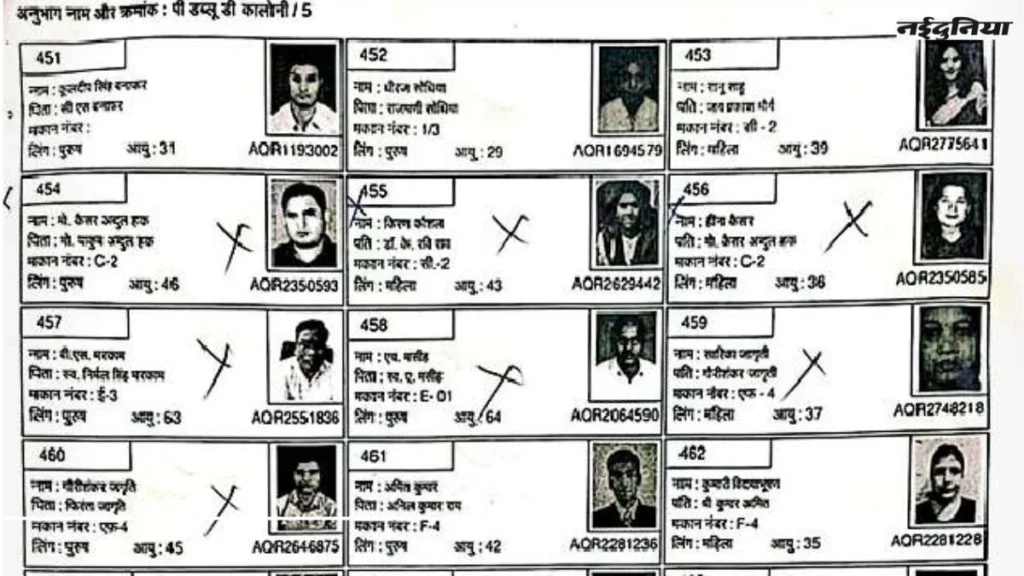 अनुभाग नाम और क्रमांक : पी डब्लू डी कालोनी / 5
नईदुनिया
451
नाम : कुलदीप सिंह बनाफर
पिता : सी एस बनाफर
मकान नंबर :
लिंग : पुरुष आयु : 31
AQR1193002
452
नाम : धीरज सोधिया
पिता : राजमणी सोधिया
मकान नंबर : 1/3
लिंग : पुरुष आयु : 29
AQR1694579
453
नाम : रानू साहू
पति : जय प्रकाश मौर्य
मकान नंबर : सी - 2
लिंग : महिला आयु : 39
AQR2775641
454
नाम : मो. कैसर अब्दुल हक
पिता : मो. अब्दुल हक
मकान नंबर : C-2
लिंग : पुरुष आयु : 46
AQR2350593
455
नाम : किरण कौशल
पति : डॉ. के. रवि राव
मकान नंबर : सी.-2
लिंग : महिला आयु : 43
AQR2629442
456
नाम : हीना कैसर
पति : मो. कैसर अब्दुल हक
मकान नंबर : C-2
लिंग : महिला आयु : 36
AQR2350585
457
नाम : बी.एस. मरकाम
पिता : स्व. निर्मल सिंह मरकाम
मकान नंबर : ई-3
लिंग : पुरुष आयु : 63
AQR2551836
458
नाम : एच. मसीह
पिता : स्व. ए. मसीह
मकान नंबर : E- 01
लिंग : पुरुष आयु : 64
AQR2064590
459
नाम : सारिका जागृती
पति : गौरीशंकर जागृती
मकान नंबर : एफ - 4
लिंग : महिला आयु : 37
AQR2748218
460
नाम : गौरीशंकर जागृति
पिता : फिरंता जागृति
मकान नंबर : एफ-4
लिंग : पुरुष आयु : 45
AQR2646875
461
नाम : अमित कुमार
पिता : अनिल कुमार राय
मकान नंबर : F-4
लिंग : पुरुष आयु : 42
AQR2281236
462
नाम : कुमारी विद्याभूषण
पति : श्री कुमार अमित
मकान नंबर : F-4
लिंग : महिला आयु : 35
AQR2281228